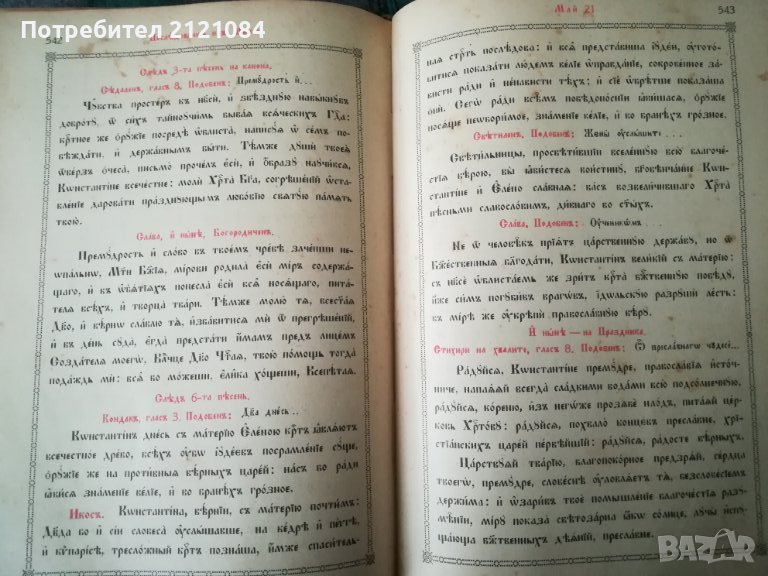 Потребител 2121084
542
Слѣдъ 3-та пѣсень на канона,
Сѣдаленъ, гласъ 8. Подобенъ: Премꙋдрость и҆...
Чꙋвства простеръ къ нб҃си, и҆ ѕвѣзднꙋю навыкнꙋвъ
добротꙋ, ѿ сихъ тайноꙋчимь бывая всяческихъ Гд҃а:
крⷭ҇тное же ѻ҆рꙋжїе посредѣ ѡ҆блиста, написꙋя ѿ семъ по-
бѣждати. и҆ державнымъ быти. Тѣмже дꙋши̑ твоея
ѿверзъ ѻ҆чеса, письмо прочелъ єси̑, и҆ ѻ҆бразꙋ наꙋчився,
Кѡнстантїне всечестне: моли Хрⷭ҇та Бг҃а, согрѣшенїй ѡ҆ста-
вленїе даровати празднꙋющымъ любовїю святꙋю память
твою.
Слава, и҆ нынѣ, Богородиченъ.
Премꙋдрость и҆ слово въ твоемъ чревѣ заченши не-
ѡ҆пальнѡ, Мт҃и Бж҃їя, мірови родила єси̑ міръ содержа-
щаго, и҆ въ ѡ҆бѧтїяхъ понесла єси̑ вся̑ носящаго, пита-
теля всѣхъ, и҆ творца твари. Тѣмже молю тя, всест҃ая
Дв҃о, и҆ вѣрнѡ славлю тя, и҆збавитися ми ѿ прегрѣшенїй,
и҆ въ день сꙋда, єгда предстати и҆мамъ предъ лицемъ
Создателя моегѡ, Вл҃чце Дв҃о Чⷭ҇тая, твою помощь тогда
подаждь ми: вся̑ бо можеши, єлика хощеши, Всепѣтая.
Слѣдъ 6-та пѣсень,
Кондакъ, гласъ 3. Подобенъ: Два днесь...
Кѡнстантинъ днесь съ матерїю Єленою крⷭ҇тъ ꙗвляютъ
всечестное древо, всѣхъ ꙋбѡ їꙋдеѡвъ посрамленїе сꙋще,
ѻ҆рꙋжїе же на противныя вѣрныхъ царей: насъ бо ради
ꙗвися знаменїе велїе, и҆ во бранехъ грозное.
Икосъ. Кѡнстантїна, вѣрнїи, съ матерїю почтимъ:
Дв҃да бо и҆ сїи словеса ꙋслышавше, на кедрѣ и҆ певгѣ,
и҆ кѷпарісѣ, треслožный крⷭ҇тъ познаша, имже спаситель-
Май 21
543
ная стрⷭ҇ть послѣдова: и҆ вся̑ представиша їꙋдеи, ꙋгото-
витися показати людемъ велїе ѡ҆правданїе, сокровенное за-
висти ради и҆ ненависти тѣхъ: и҆ сїе ѡ҆брѣтше показаша
ѻ҆ни. Сегѡ ради всѣмъ побѣдоносни ꙗвишася, ѻ҆рꙋжїе
носяще неѡборимое, знаменїе велїе, и҆ во бранехъ грозное.
Свѣтиленъ, Подобенъ: Жены ꙋслышите...
Свѣтильницы, просвѣтивши вселеннꙋю всю благоче-
стїя вѣрою, вы ꙗвистеся воистинꙋ, бг҃овѣнчанне Кѡн-
стантїне и҆ Єлено славная: васъ возвеличившаго Хрⷭ҇та
пѣсными славословимъ, дивнаго во ст҃ыхъ.
Слава, Подобенъ: Оꙋченикѡмъ...
Не ѿ человѣкъ прїятъ царственнꙋю державꙋ, но ѿ
Бжⷭ҇твенныя благодати, Кѡнстантинъ великїй съ матерїю:
съ нб҃се ѡ҆блистаемь же зритъ крⷭ҇та бжⷭ҇твеннꙋю побѣдꙋ,
ѝже симъ погꙋбивъ врагѡвъ, їдѡльскꙋю разрꙋши лесть:
въ мірѣ же ꙋкрѣпи православнꙋю вѣрꙋ:
И҆ нынѣ — на Праздника.
Стихири на хвалите, гласъ 8. Подобенъ: Ѿ преславнагѡ чꙋдесе...
Радꙋйся, Кѡнстантїне премꙋдре, православїя источ-
ниче, напаяяй всегда сладкими водами всю подсолнечнꙋю,
радꙋйся, кореню, из негѡже прозѧбе плодъ, питаяй цер-
ковь Хрⷭ҇товꙋ: радꙋйся, похвало концевъ преславне, хрї-
стїанскихъ царей первѣйшїй: радꙋйся, радосте вѣрныхъ.
Царствꙋяй тварїю, благопокорное предзряй, сердца
твоегѡ, премꙋдре, словеснѣ ꙋловляетъ тя, безсловесїемъ
держима: и҆ ѡ҆заривъ твое помышленїе благочестїя разꙋ-
мѣнїи, мірꙋ показа свѣтозарна ꙗкѡ солнце, лꙋчы испꙋ-
щающа бжⷭ҇твенныхъ дѣянїй, преславне.
BAZAR
bg